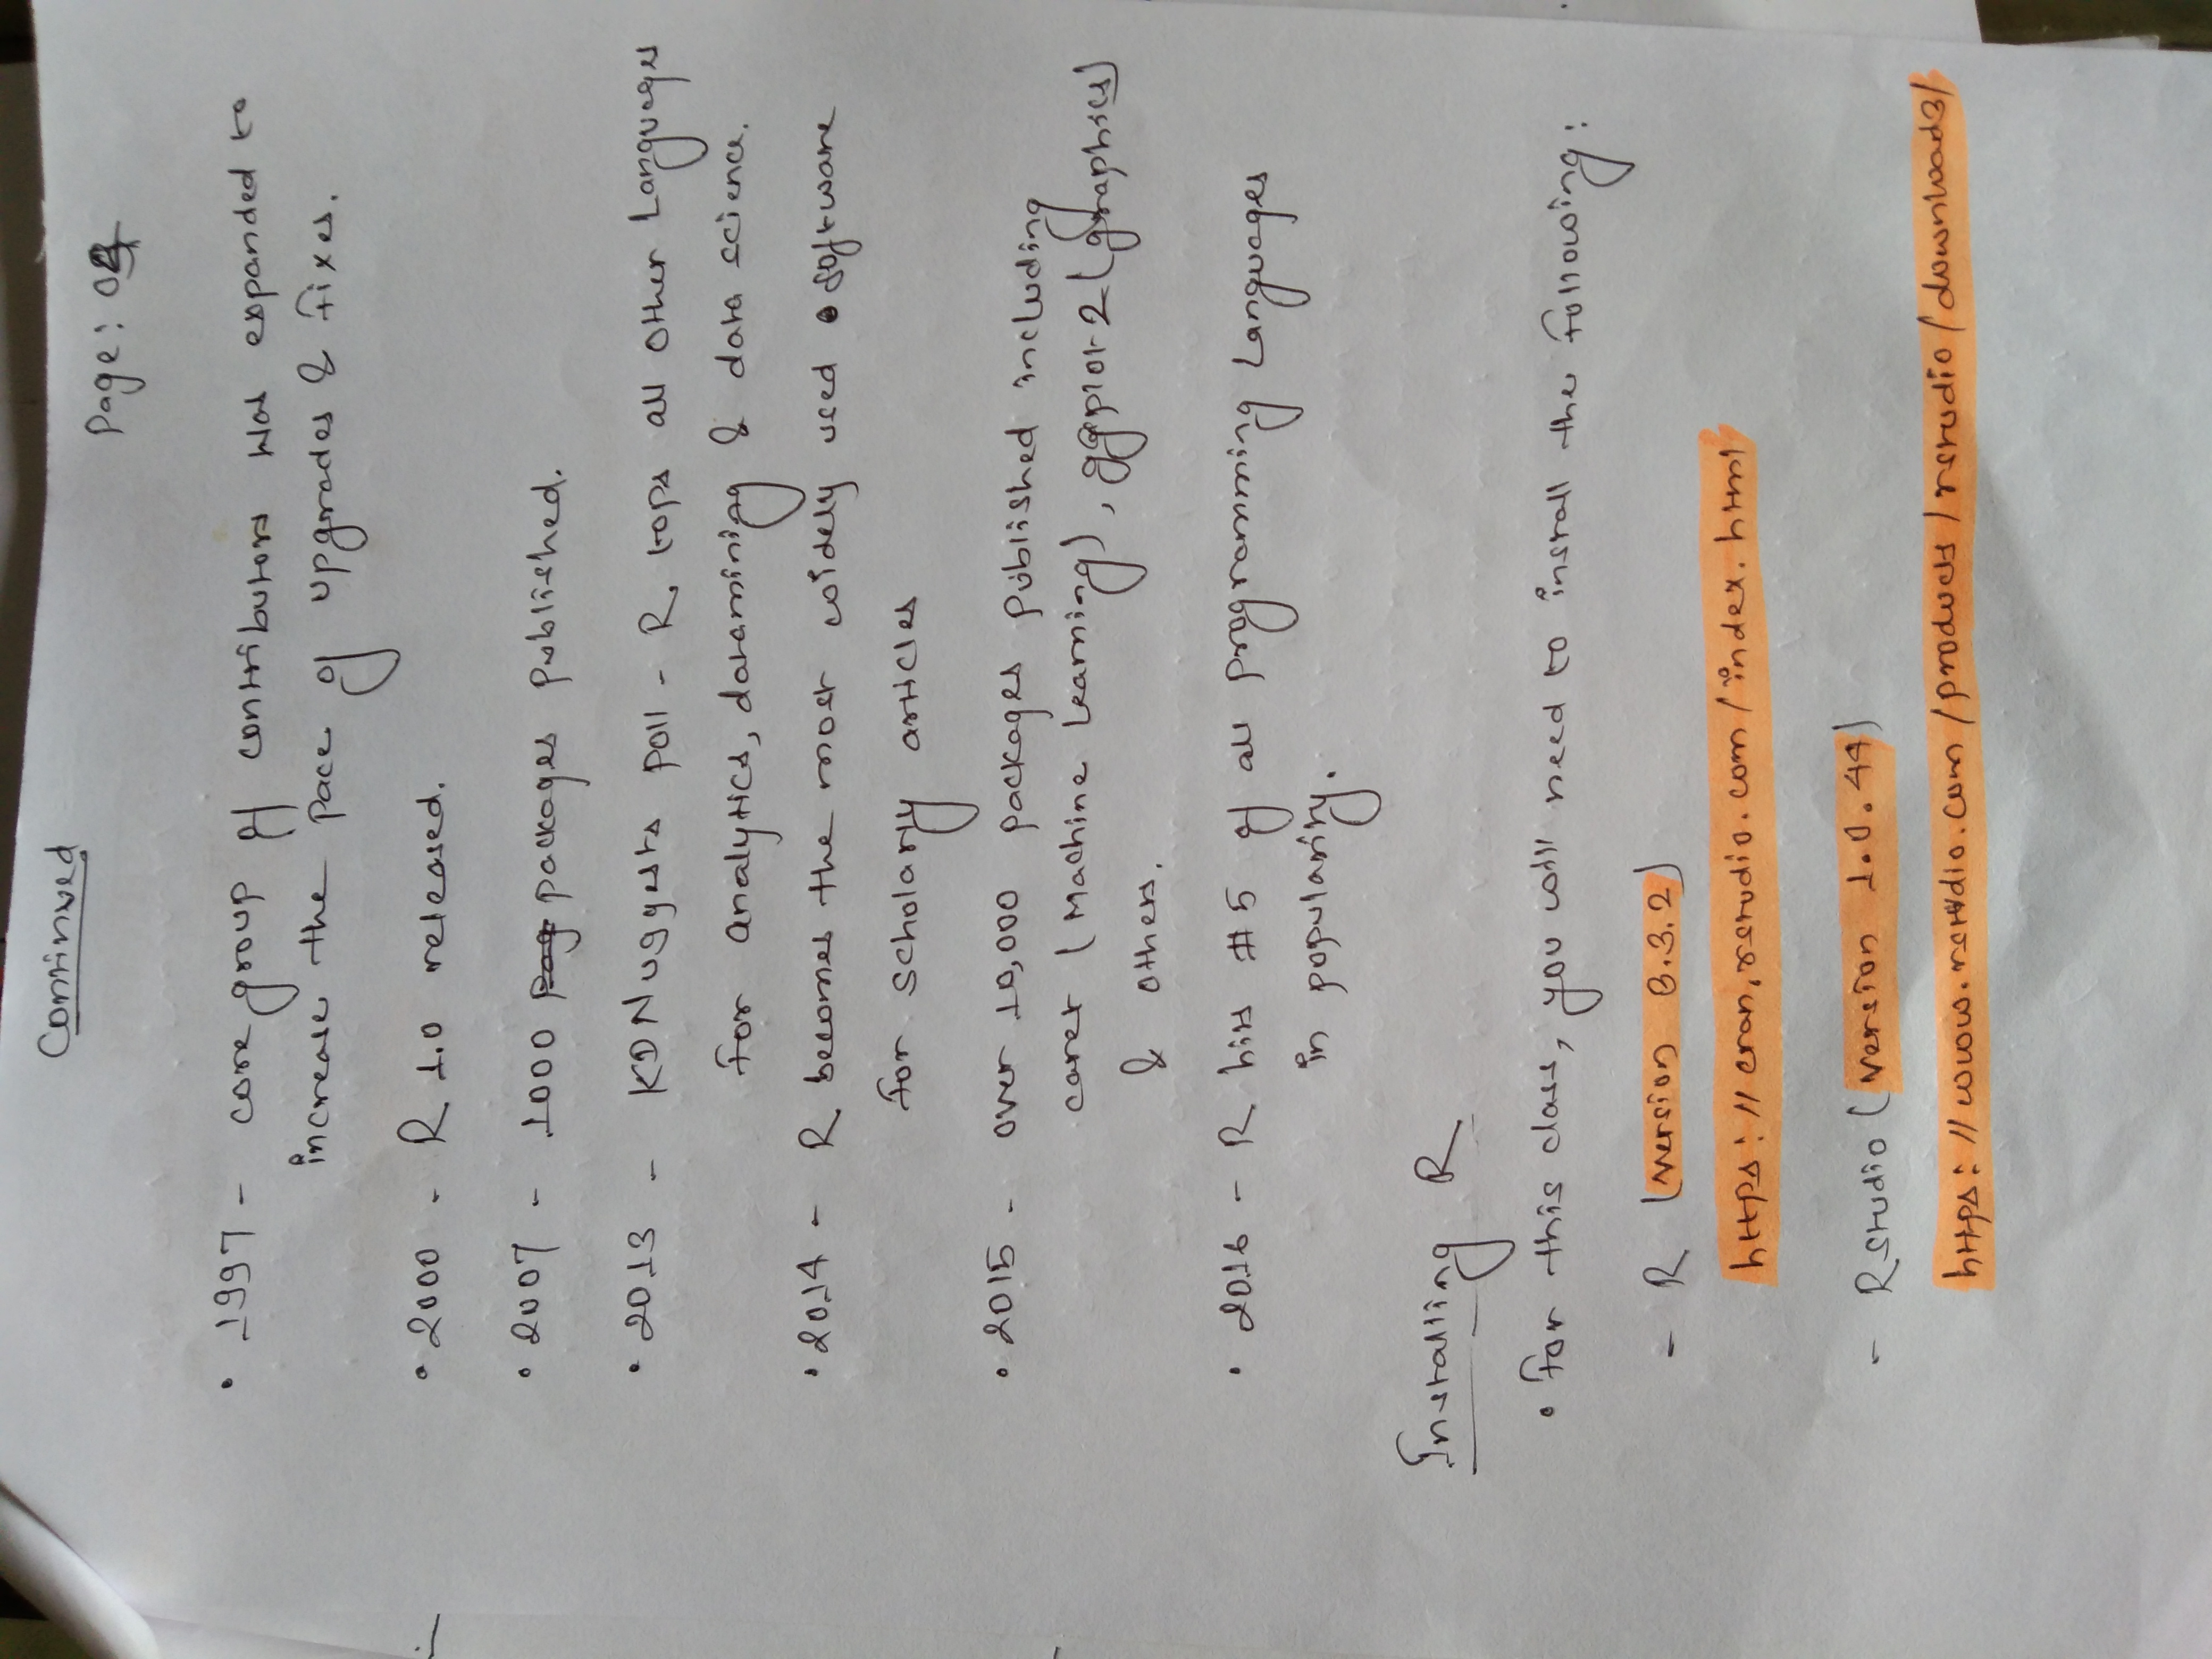 Continued
Page: 04
• 1997 - core group of contributors was expanded to
increase the pace of upgrades & fixes.
• 2000 - R 1.0 released.
• 2007 - 1000 packages published.
• 2013 - KDNuggets poll - R, tops all other Languages
for analytics, datamining & data science.
• 2014 - R becomes the most widely used software
for scholarly articles
• 2015 - over 10,000 packages published including
caret (Machine Learning), ggplot2 (graphics)
& others.
• 2016 - R hits #5 of all programming Languages
in popularity.
Installing R
• for this class, you will need to install the following:
- R (version 3.3.2)
https://cran,rstudio.com/index.html
- RStudio (version 1.0.44)
https://www.rstudio.com/products/rstudio/download3/